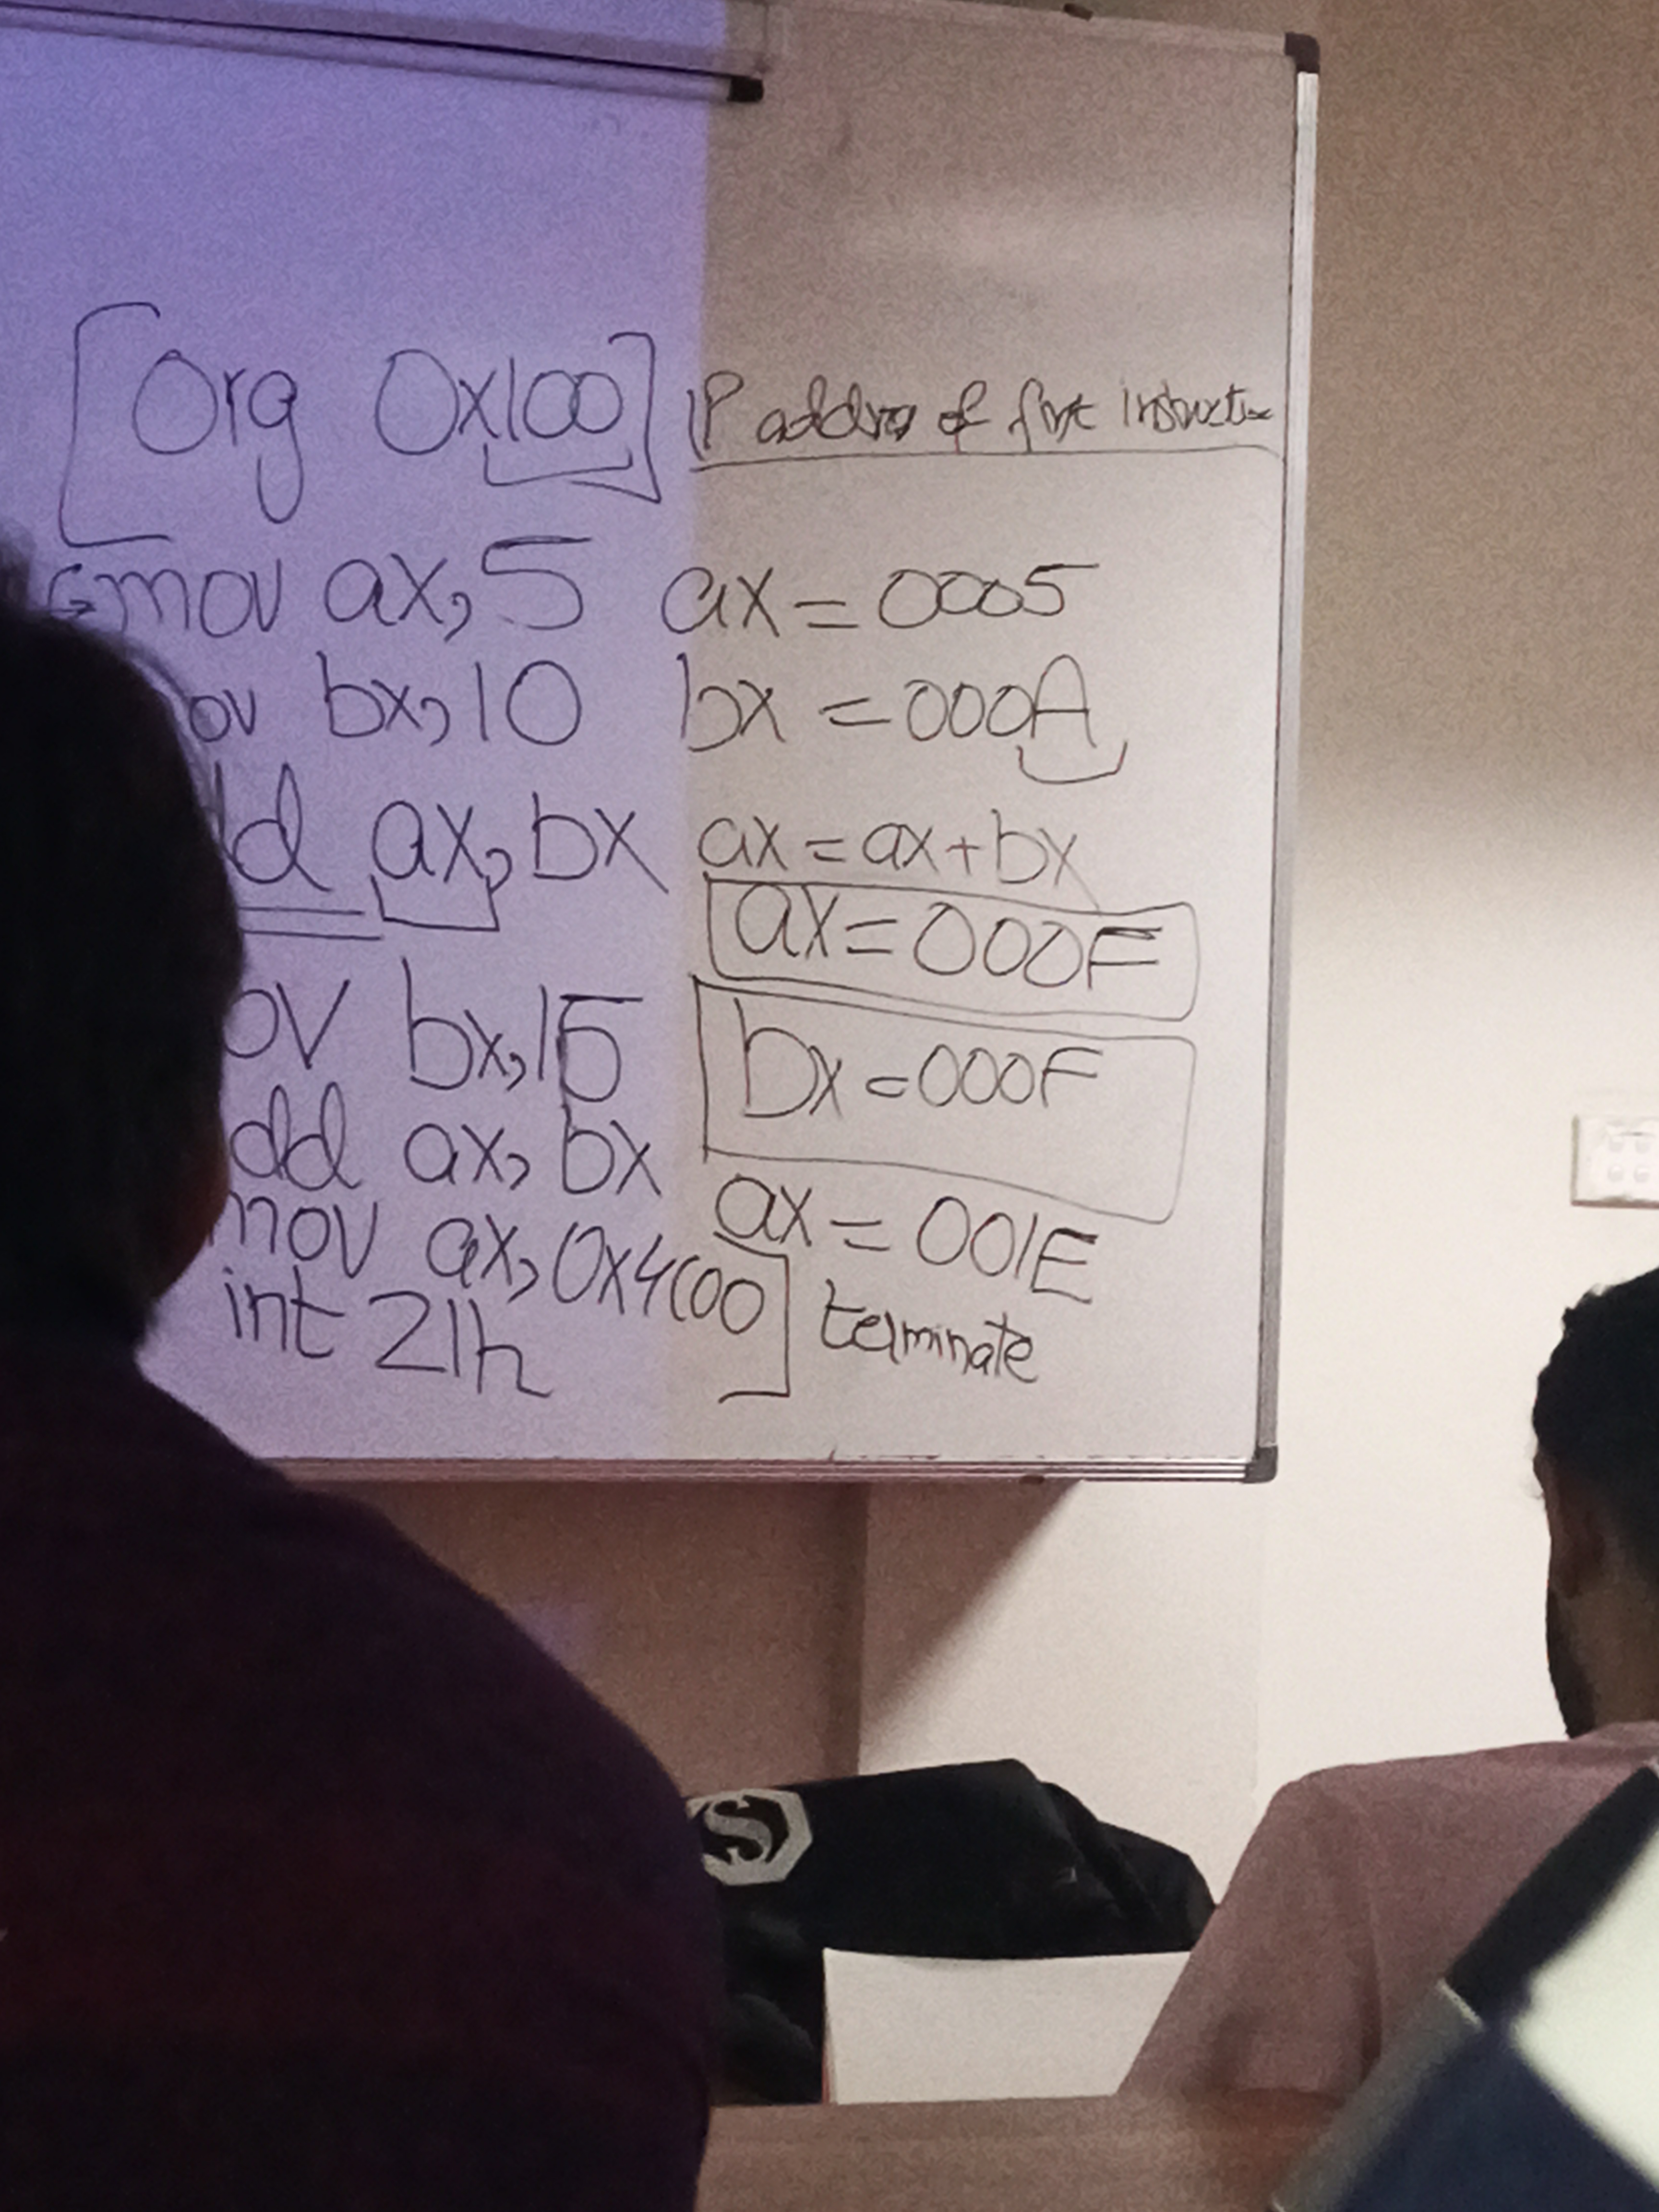 [Org 0x100] IP address of first instruction
mov ax, 5 ax = 0005
ov bx, 10 bx = 000A
dd ax, bx ax = ax + bx
ax = 000F
ov bx, 15 bx = 000F
dd ax, bx
ax = 001E
mov ax, 0x4C00
int 21h ] terminate
S